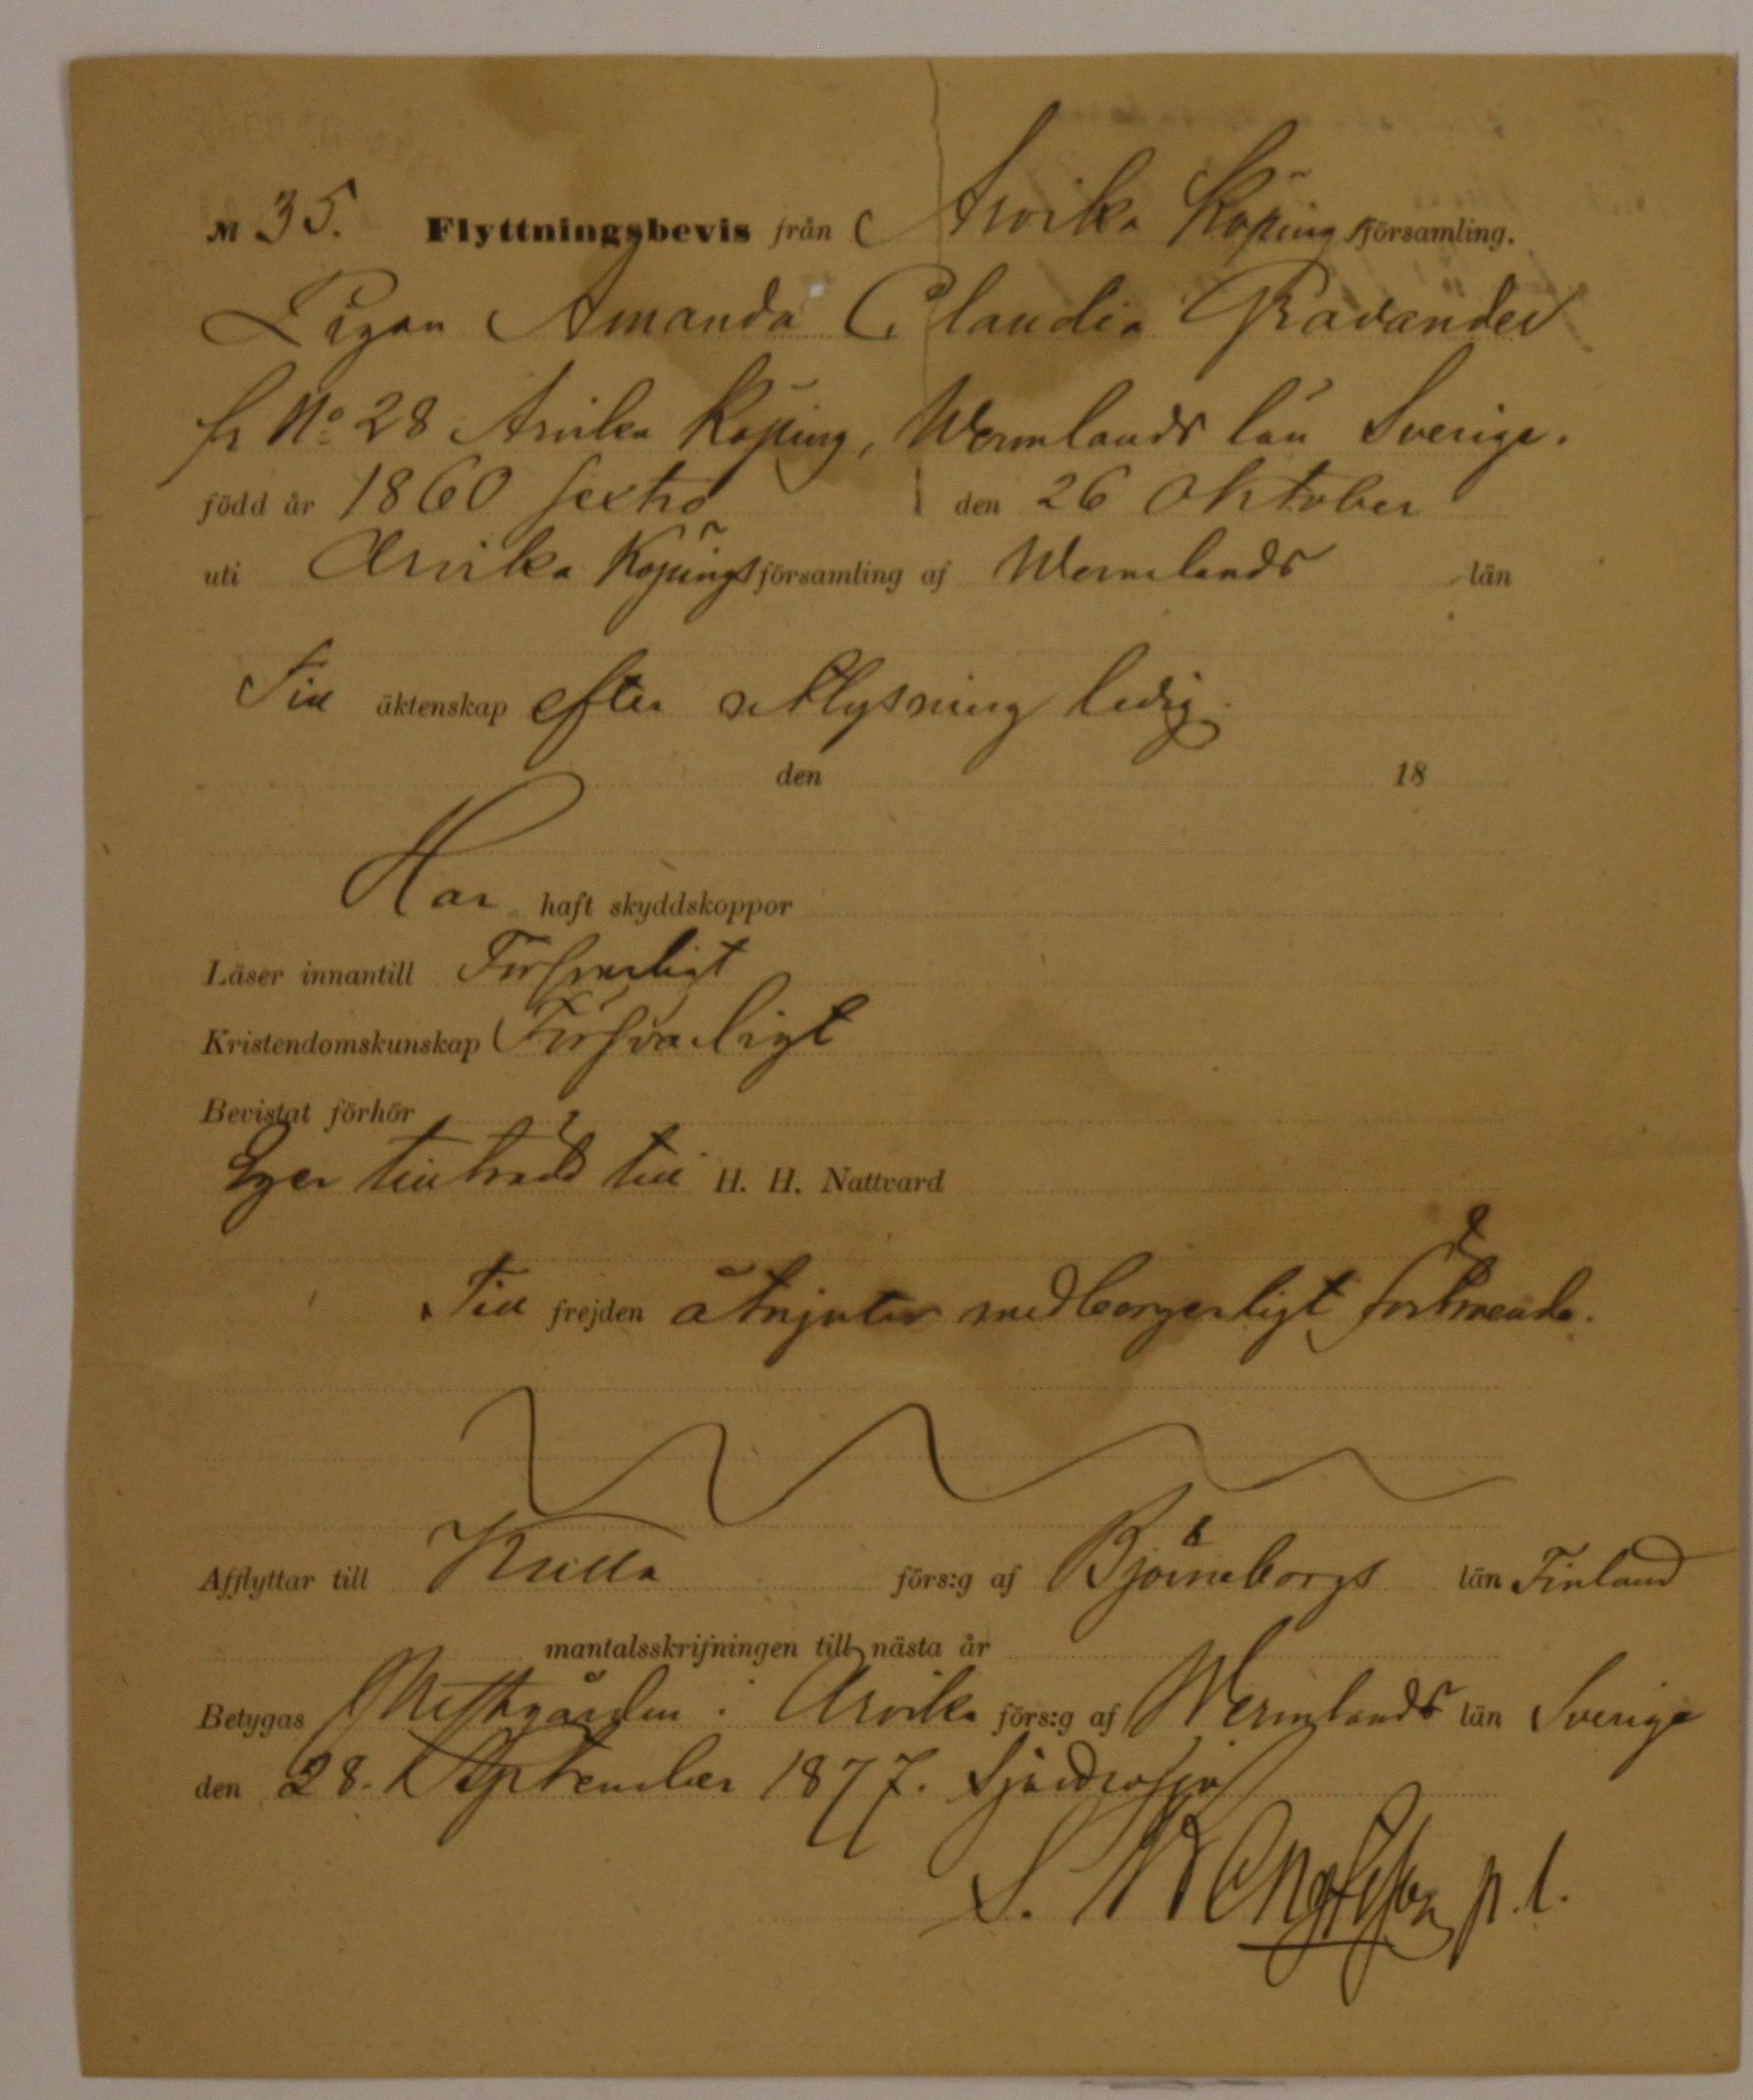 № 35. Flyttningsbevis från Arvika Köpings församling.
Pigan Amanda Claudia Gravander
fr No 28 Arvika Köping, Wermlands län Sverige.
född år 1860 sextio den 26 Oktober
uti Arvika Köpings församling af Wermlands län
Till äktenskap efter aflysning ledig.
den 18
Har haft skyddskoppor
Läser innantill Försvarligt
Kristendomskunskap Försvarligt
Bevistat förhör
Eger tillträde till H. H. Nattvard
Till frejden åtnjuter medborgerligt förtroende.
Afflyttar till Kulla förs:g af Björneborgs län Finland
mantalsskrifningen till nästa år
Betygas i Arvika förs:g af Wermlands län Sverige
den 28. September 1877.
S. Bengtsson p. l.